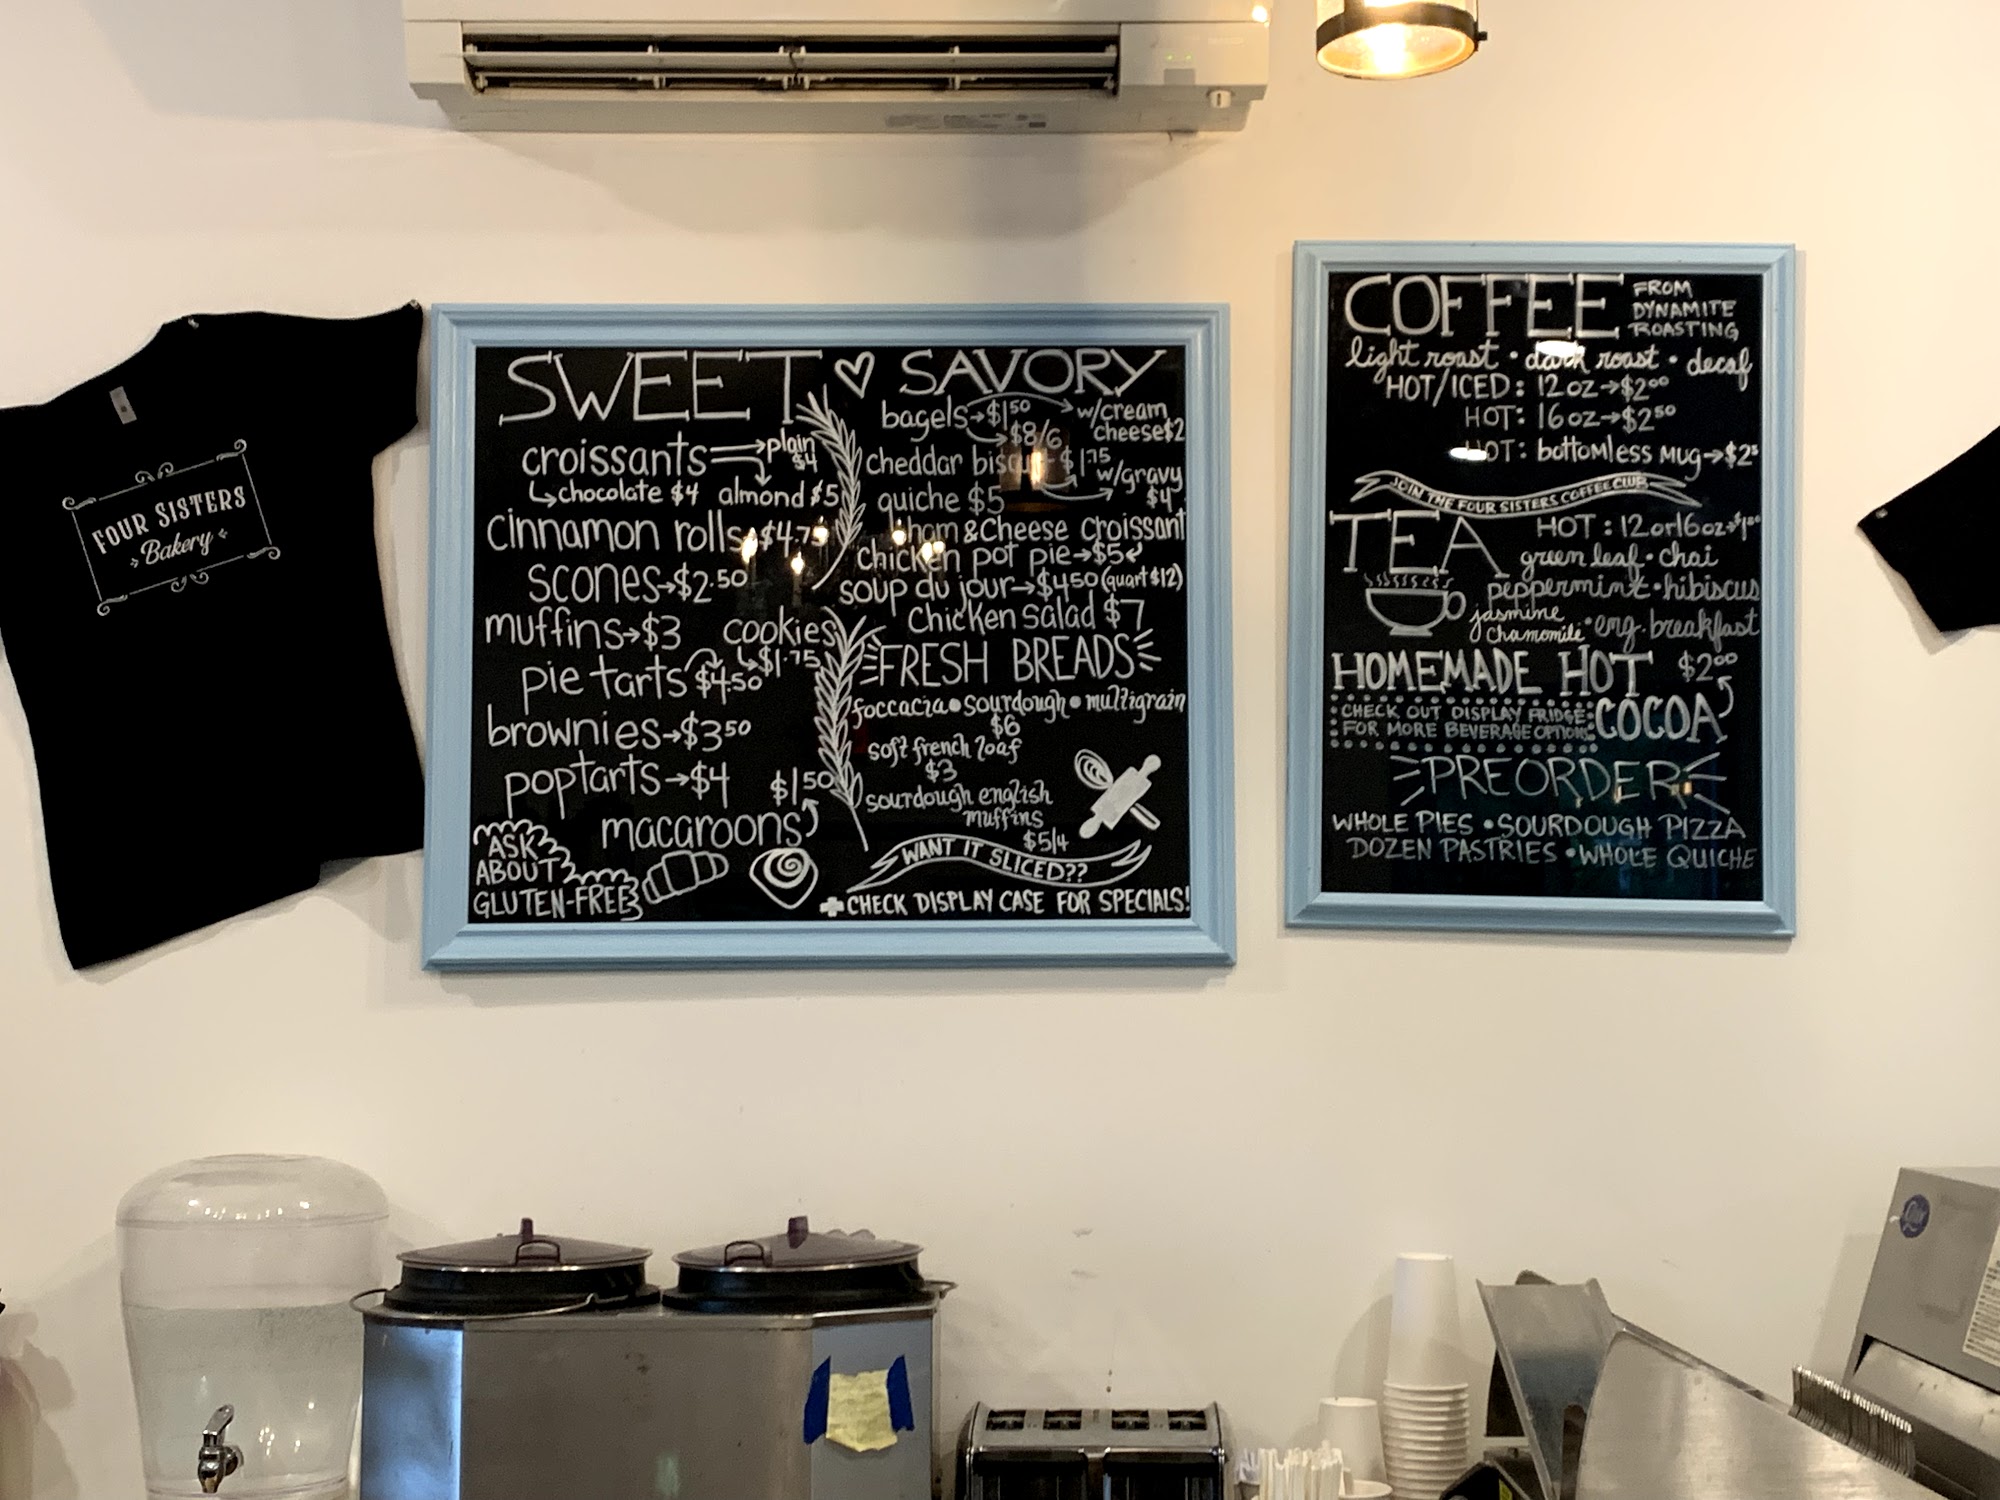 FOUR SISTERS
Bakery
SWEET
croissants plain
$4
chocolate $4 almond $5
cinnamon rolls $4.75
scones→$2.50
muffins→$3 cookies
$1.75
pie tarts $4.50
brownies→$3.50
poptarts→$4 $1.50
macaroons
ASK
ABOUT
GLUTEN-FREE
SAVORY
bagels→$1.50 w/cream
cheese $2
$8/6
cheddar $1.75
w/gravy
$4
quiche $5
ham & Cheese croissant
chicken pot pie→$5
soup du jour→$4.50 (quart $12)
Chicken Salad $7
FRESH BREADS
foccacia • sourdough • multigrain
$6
soft french loaf
$3
sourdough english
muffins
$5/4
WANT IT SLICED??
+CHECK DISPLAY CASE FOR SPECIALS!
COFFEE FROM
DYNAMITE
ROASTING
light roast • dark roast • decaf
HOT/ICED: 12oz→$2.00
HOT: 16oz→$2.50
HOT: bottomless MUG→
JOIN THE FOUR SISTERS COFFEE CLUB
TEA HOT: 12 or 16oz
green leaf • chai
peppermint • hibiscus
jasmine
chamomile • eng. breakfast
HOMEMADE HOT $2.00
COCOA
CHECK OUT DISPLAY FRIDGE
FOR MORE BEVERAGE OPTIONS
PREORDER
WHOLE PIES • SOURDOUGH PIZZA
DOZEN PASTRIES • WHOLE QUICHE